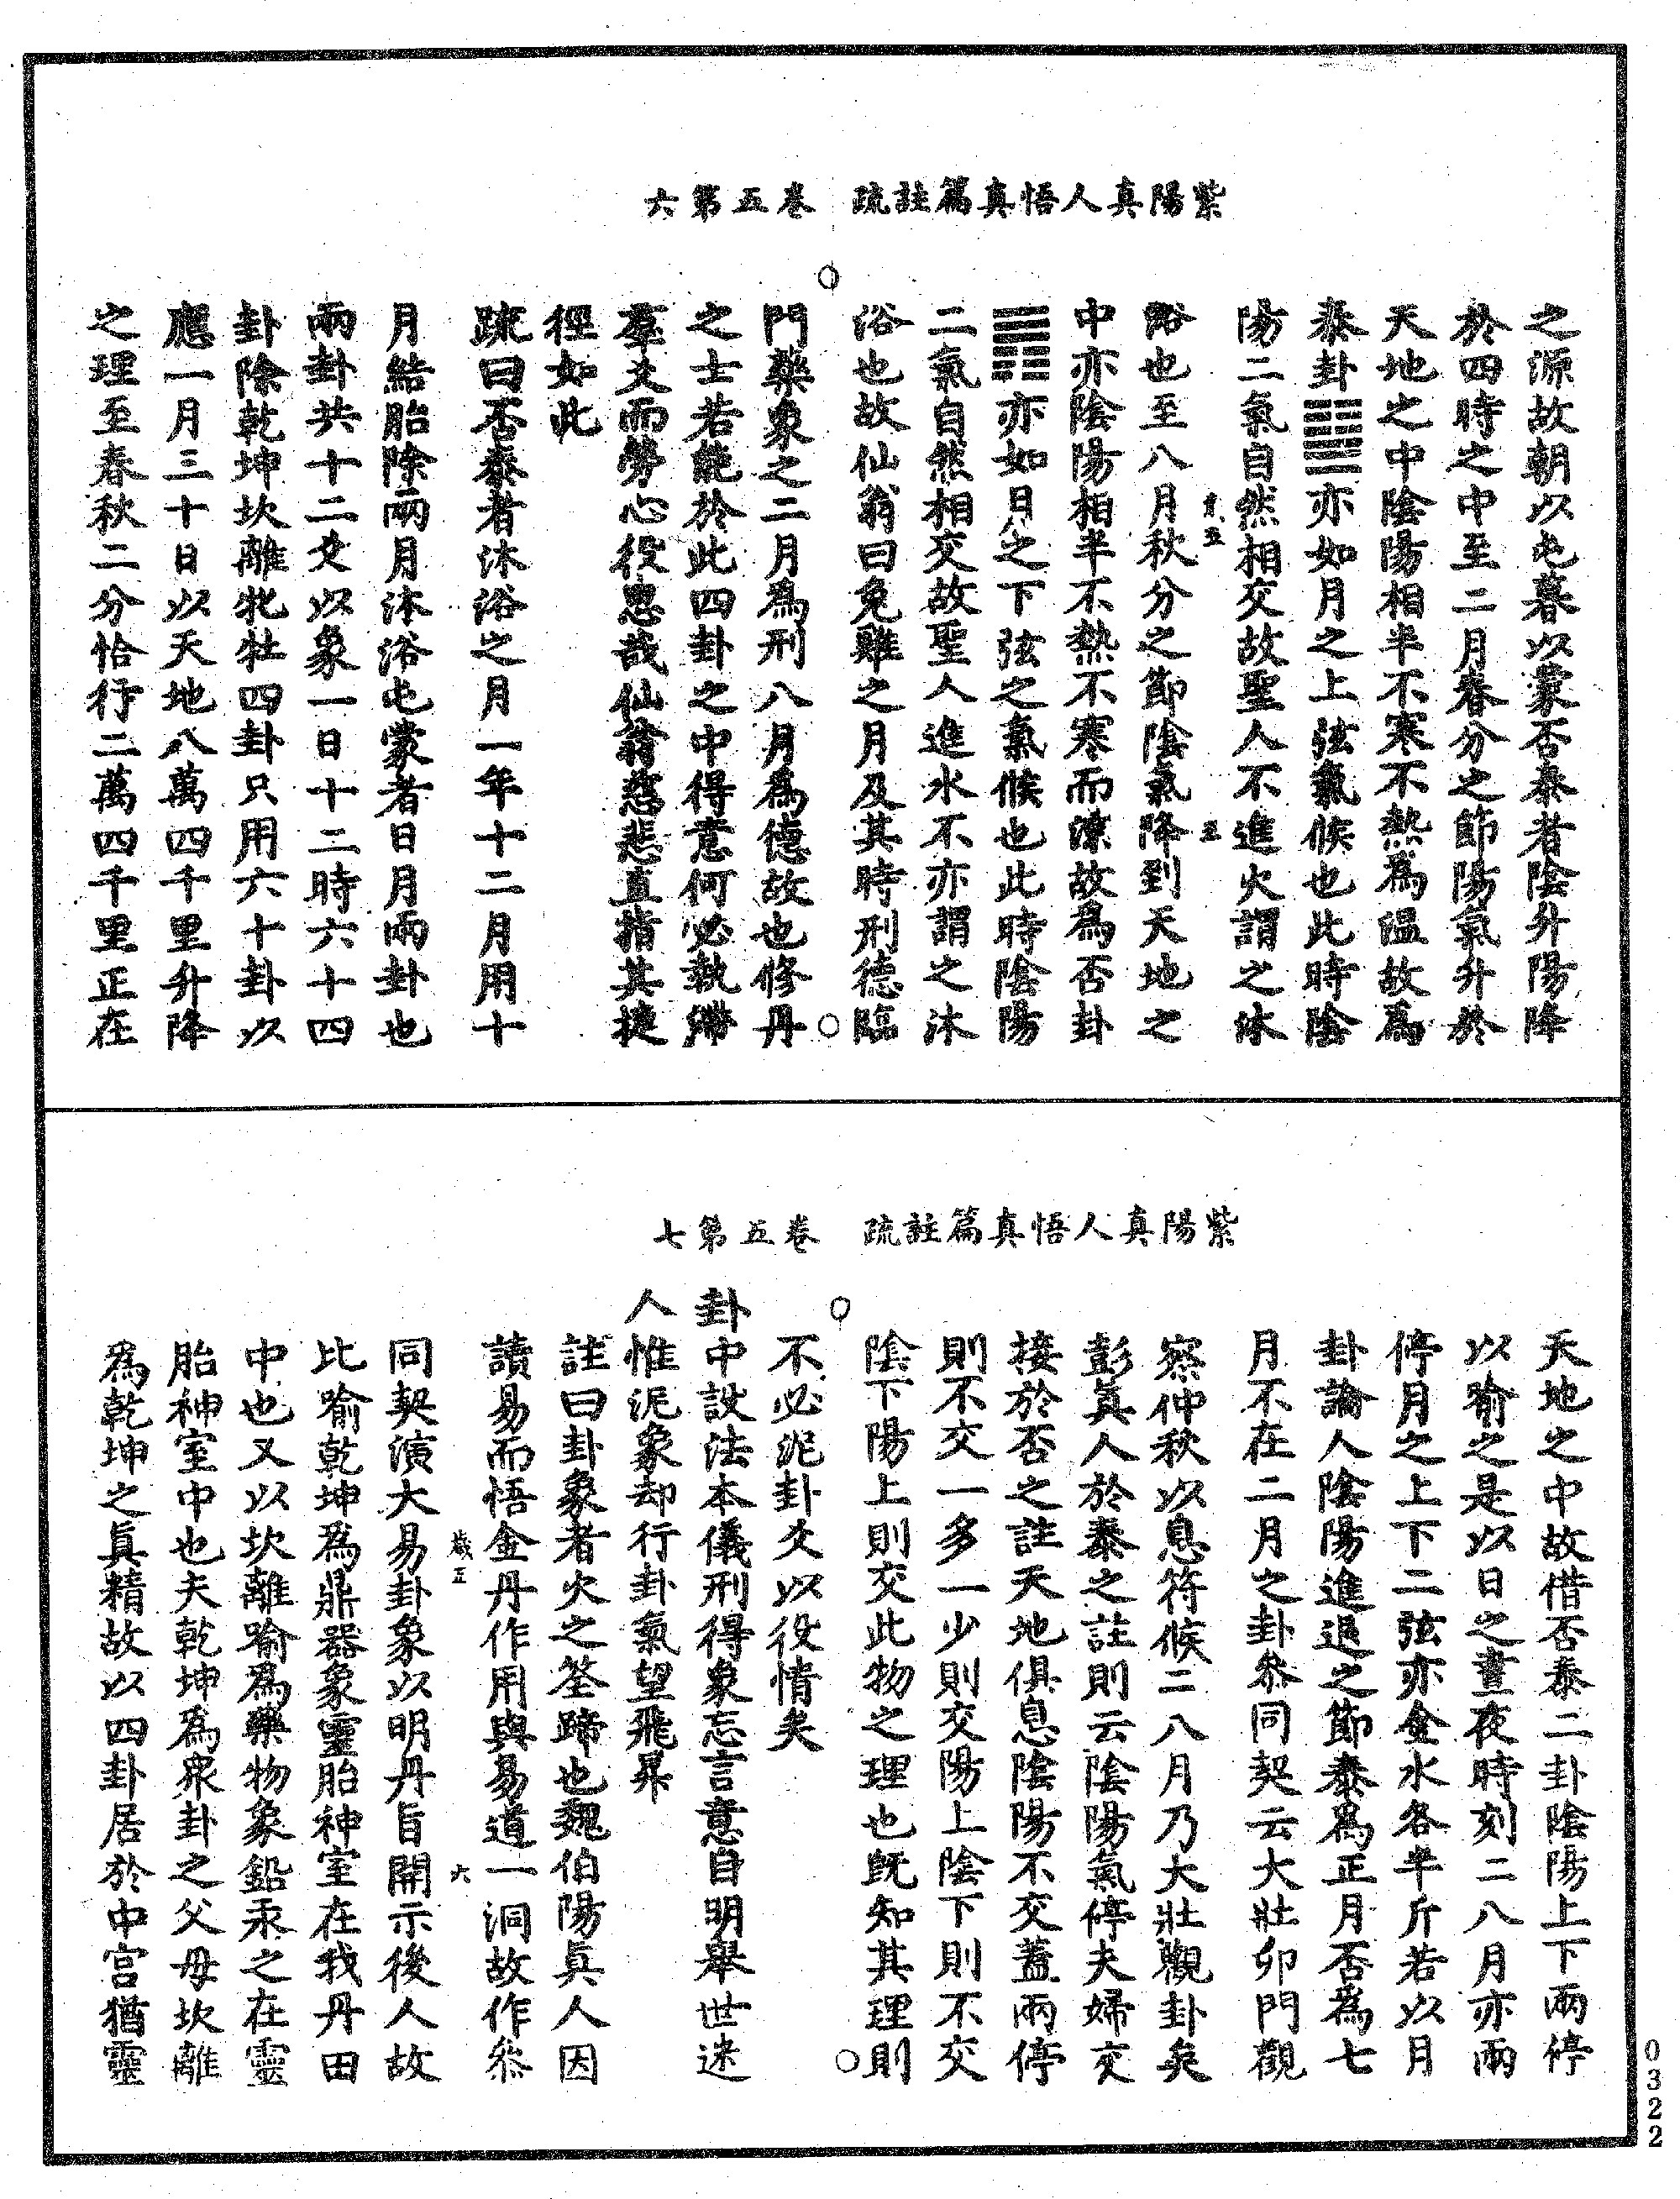 紫陽真人悟真篇註疏　卷五第六
之源故朝以屯暮以蒙否泰者陰升陽降
於四時之中至二月春分之節陽氣升於
天地之中陰陽相半不寒不熱為溫故為
泰卦䷊亦如月之上弦氣候也此時陰
陽二氣自然相交故聖人不進火謂之沐
五
浴也至八月秋分之節陰氣降到天地之
中亦陰陽相半不熱不寒而涼故為否卦
䷋亦如月之下弦之氣候也此時陰陽
二氣自然相交故聖人進水不亦謂之沐
浴也故仙翁曰兔雞之月及其時刑德臨
門藥象之二月為刑八月為德故也修丹
之士若能於此四卦之中得意何必執滯
羣爻而勞心役思哉仙翁慈悲直指其捷
徑如此
疏曰否泰者沐浴之月一年十二月用十
月結胎除兩月沐浴屯蒙者日月兩卦也
兩卦共十二爻以象一日十二時六十四
卦除乾坤坎離牝牡四卦只用六十卦以
應一月三十日以天地八萬四千里升降
之理至春秋二分恰行二萬四千里正在
紫陽真人悟真篇註疏　卷五第七
天地之中故借否泰二卦陰陽上下兩停
以喻之是以日之晝夜時刻二八月亦兩
停月之上下二弦亦金水各半斤若以月
卦論人陰陽進退之節泰為正月否為七
月不在二月之卦叅同契云大壯卯門觀
察仲秋以息符候二八月乃大壯觀卦矣
彭真人於泰之註則云陰陽氣停夫婦交
接於否之註天地俱息陰陽不交蓋兩停
則不交一多一少則交陽上陰下則不交
陰下陽上則交此物之理也既知其理則
不必泥卦爻以役情矣
卦中設法本儀刑得象忘言意自明舉世迷
人惟泥象却行卦氣望飛昇
註曰卦象者火之筌蹄也魏伯陽真人因
讀易而悟金丹作用與易道一洞故作叅
歲五　六
同契演大易卦象以明丹旨開示後人故
比喻乾坤為鼎器象靈胎神室在我丹田
中也又以坎離喻為藥物象鉛汞之在靈
胎神室中也夫乾坤為眾卦之父母坎離
為乾坤之真精故以四卦居於中宮猶靈
0322